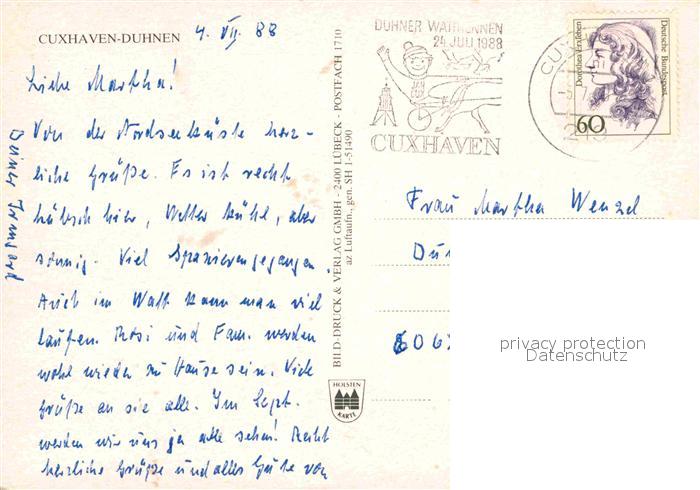 CUXHAVEN-DUHNEN
4. VII. 88
Liebe Martha!
Von der Nordseeküste herz-
liche Grüße. Es ist recht
hübsch hier, Wetter kühl, aber
sonnig. Viel spazierengegangen.
Auch im Watt kann man viel
laufen. Rosi und Fam. werden
wohl wieder zu Hause sein. Viele
Grüße an sie alle. Im Sept.
werden wir uns ja alle sehen! Recht
herzliche Grüße und alles Gute von
Deiner Irmgard
BILD-DRUCK & VERLAG GMBH - 2400 LÜBECK - POSTFACH 1710
az Luftaufn., gen. SH 1-51490
HOLSTEN
KARTE
DUHNER WATTRENNEN
24 JULI 1988
CUXHAVEN
CUX
Dorothea Erxleben
Deutsche Bundespost
60
Frau Martha Wenzel
privacy protection
Datenschutz